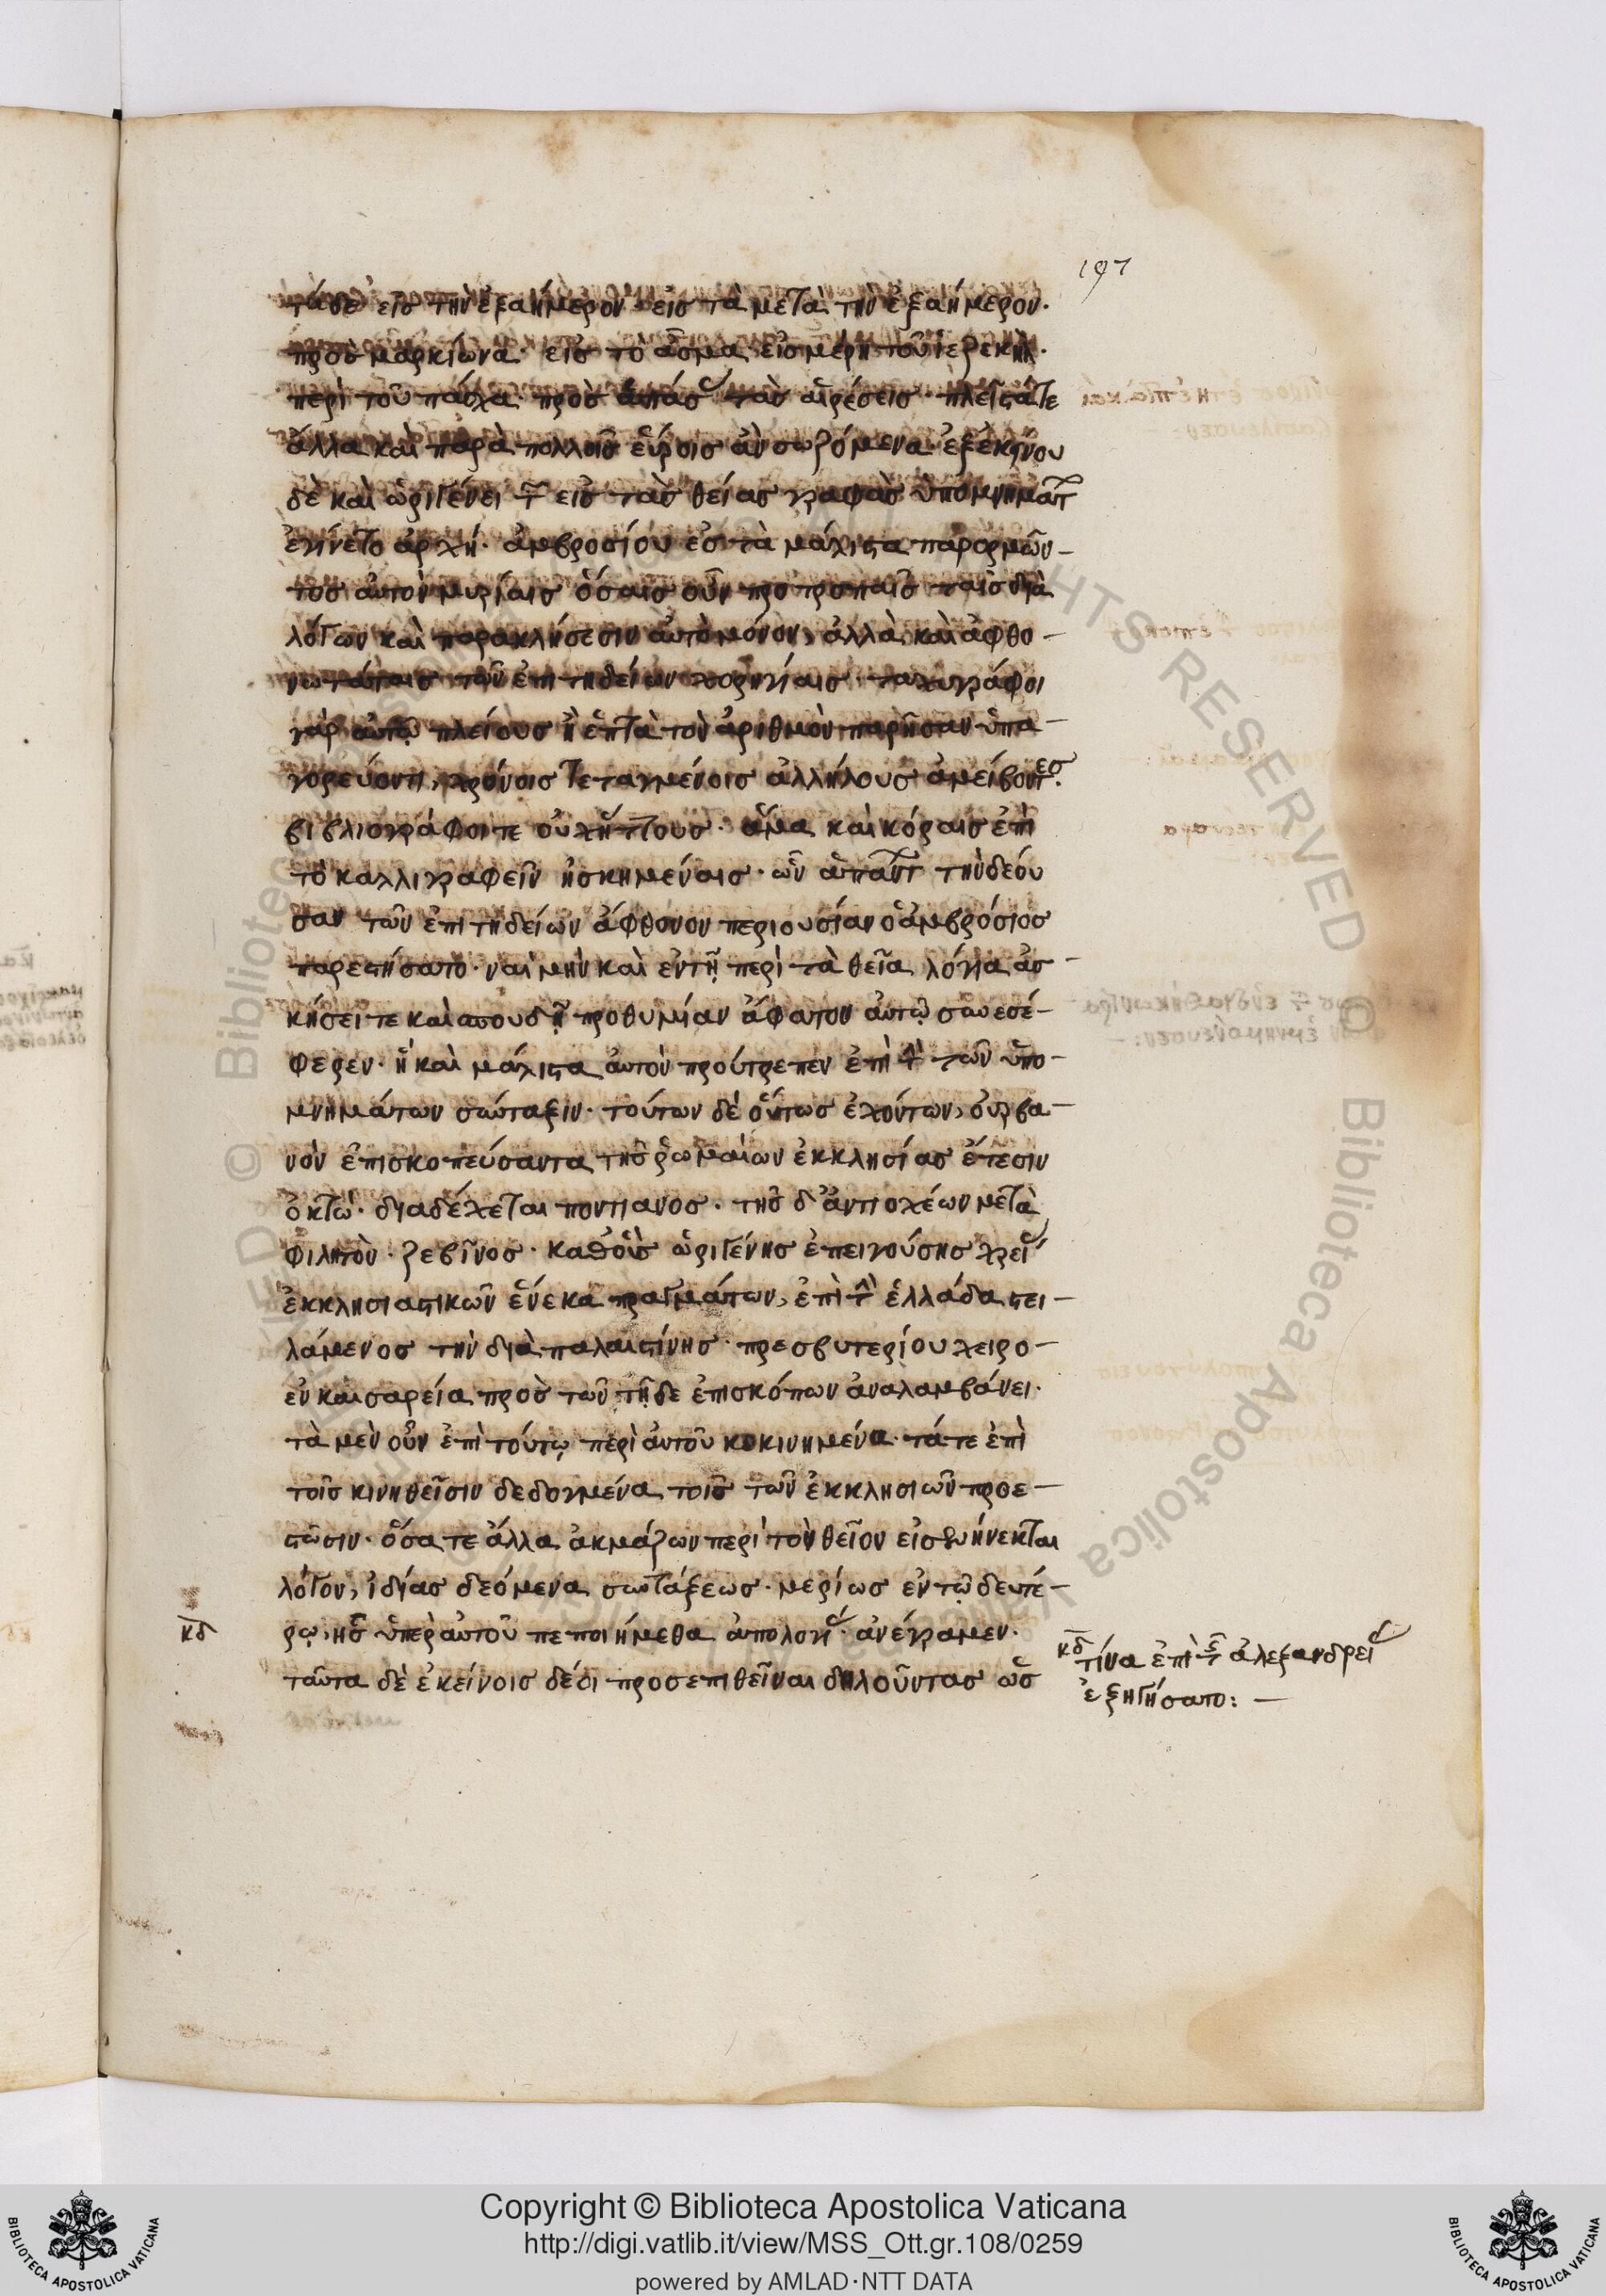 197
τάδε εἰς τὴν ἑξαήμερον· εἰς τὰ μετὰ τὴν ἑξαήμερον·
πρὸς μαρκίωνα· εἰς τὸ ἆσμα, εἰς μέρη τοῦ ἰεζεκιὴλ·
περὶ τοῦ πάσχα· πρὸς ἁπάσ τὰς αἱρέσεις· πλεῖστά τε
ἄλλα καὶ παρὰ πολλοῖς εὕροις ἂν σωζόμενα· ἐξ ἐκείνου
δὲ καὶ ὠριγένει τ εἰς τὰς θείας γραφὰς ὑπομνημάτ
ἐγίνετο ἀρχή· ἀμβροσίου ἐς τὰ μάλιστα παρορμῶν-
τος αὐτὸν μυρίαις ὅσαις οὖν προτροπαῖς ταῖς διὰ
λόγων καὶ παρακλήσεσιν αὐτὸ μόνον, ἀλλὰ καὶ ἀφθο-
νωτάταις τῶν ἐπιτηδείων χορηγίαις· ταχυγράφοι
γὰρ αὐτῷ πλείους ἢ ἑπτὰ τὸν ἀριθμὸν παρῆσαν ὑπα-
γορεύοντι, χρόνοις τεταγμένοις ἀλλήλους ἀμείβοντες·
βιβλιογράφοι τε οὐχ ἥττους· ἅμα καὶ κόραις ἐπὶ
τὸ καλλιγραφεῖν ἠσκημέναις· ὧν ἁπάντ τὴν δέου
σαν τῶν ἐπιτηδείων ἄφθονον περιουσίαν ὁ ἀμβρόσιος
παρεστήσατο· ναὶ μὴν καὶ ἐν τῇ περὶ τὰ θεῖα λόγια ἀσ-
κήσει τε καὶ σπουδῇ προθυμίαν ἄφατον αὐτῷ συνεσέ-
φερεν· ᾗ καὶ μάλιστα αὐτὸν προύτρεπεν ἐπὶ τ τῶν ὑπο-
μνημάτων σύνταξιν· τούτων δὲ οὕτως ἐχόντων, οὐρβα-
νὸν ἐπισκοπεύσαντα τῆς ῥωμαίων ἐκκλησίας ἔτεσιν
ὀκτώ· διαδέχεται ποντιανος· τῆς δ' ἀντιοχέων μετὰ
φιλητὸν· ζεβῖνος· καθ' οὓς ὠριγένης ἐπειγούσης χρεί
ἐκκλησιαστικῶν ἕνεκα πραγμάτων, ἐπὶ τ ἑλλάδα στει-
λάμενος τὴν διὰ παλαιστίνης· πρεσβυτερίου χειρο-
ἐν καισαρεία πρὸς τῶν τῇδε ἐπισκόπων ἀναλαμβάνει·
τὰ μὲν οὖν ἐπὶ τούτῳ περὶ αὐτοῦ κεκινημένα· τά τε ἐπὶ
τοῖς κινηθεῖσιν δεδογμένα τοῖς τῶν ἐκκλησιῶν προε-
στῶσιν· ὅσα τε ἄλλα ἀκμάζων περὶ τὸν θεῖον εἰσενήνεκται
λόγον, ἰδίας δεόμενα συντάξεως· μερίως ἐν τῷ δευτέ-
ρῳ, ἧς ὑπὲρ αὐτοῦ πεποιήμεθα ἀπολογί· ἀνέγραμεν·
ταῦτα δὲ ἐκείνοις δέοι προσεπιθεῖναι δηλοῦντας ὡς
κδ
κδ τίνα ἐπὶ τ ἀλεξανδρεί
ἐξηγήσατο: —
Copyright © Biblioteca Apostolica Vaticana
http://digi.vatlib.it/view/MSS_Ott.gr.108/0259
powered by AMLAD·NTT DATA
BIBLIOTECA APOSTOLICA VATICANA
BIBLIOTECA APOSTOLICA VATICANA